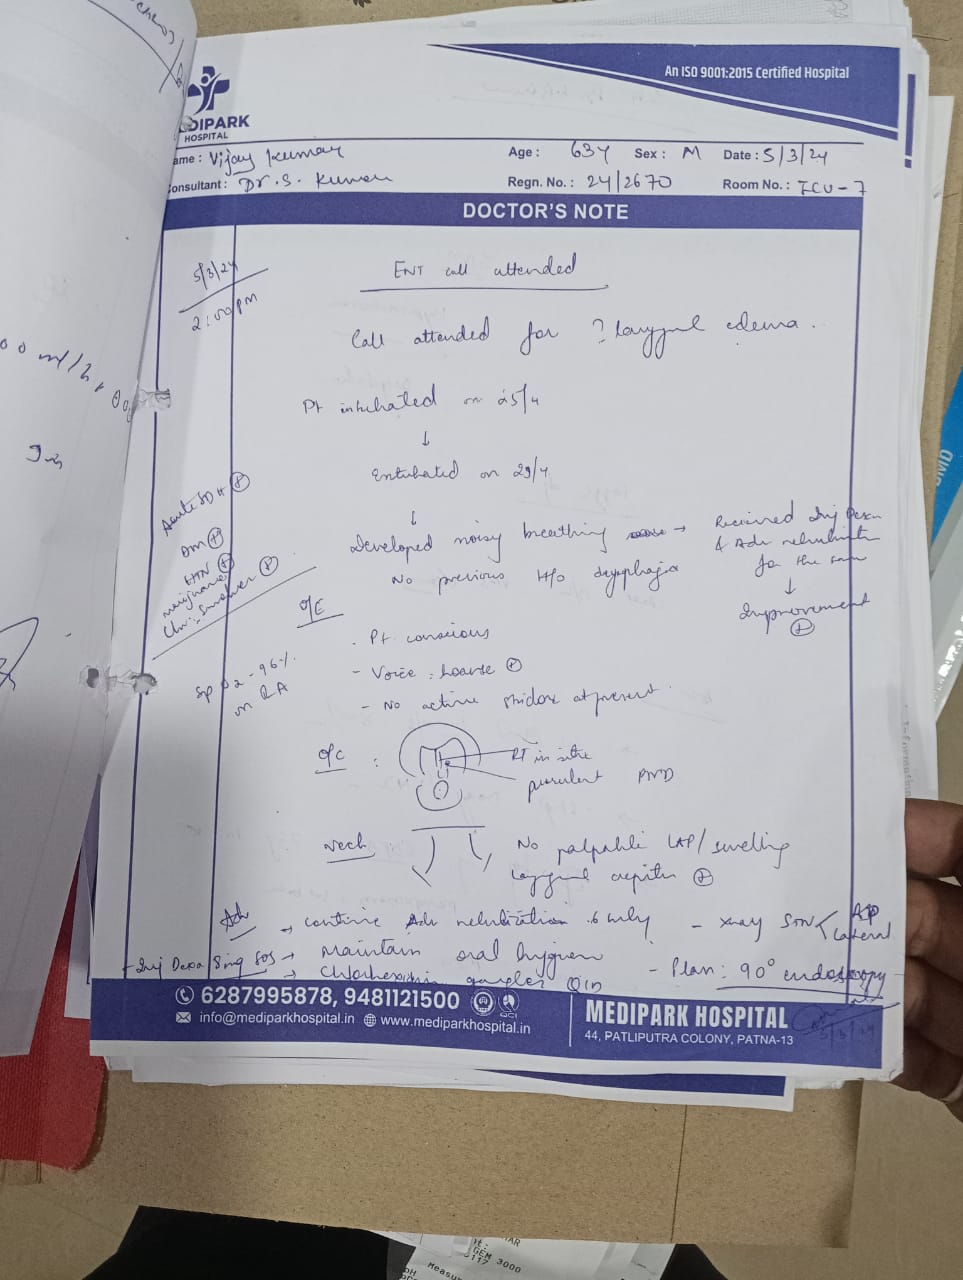 An ISO 9001:2015 Certified Hospital
DIPARK
HOSPITAL
ame : Vijay Kumar Age : 63Y Sex : M Date : 5/3/24
onsultant : Dr. S. Kumar Regn. No. : 24/2670 Room No. : ICU-7
DOCTOR'S NOTE
5/3/24
2:00pm
ENT call attended
Call attended for ? laryngeal edema.
00 ml/hr
Pt intubated on 25/4
↓
Extubated on 29/4
↓
Developed noisy breathing → Received Inj Dexa
& Adr nebulization
for the same
↓
Improvement
⊕
No previous H/o dysphagia
Acute SDH ⊕
DM ⊕
HTN ⊕
Smoker ⊕
O/E
. Pt. conscious
- Voice : hoarse ⊕
- No active stridor at present.
Sp O2 - 96%
on RA
O/C :
RT in situ
purulent PND
Neck
No palpable LAP/swelling
laryngeal crepitus ⊕
Adv
→ continue Adr nebulization 6 hrly
- xray STN < AP
Lateral
- Inj Dexa 8mg SOS
→ Maintain oral hygiene
→ Chlorhexidin gargles QID
- Plan : 90° endoscopy
6287995878, 9481121500
QCI
info@mediparkhospital.in www.mediparkhospital.in
MEDIPARK HOSPITAL
44, PATLIPUTRA COLONY, PATNA-13
5/3/24
OMD
GEM 3000
Measu